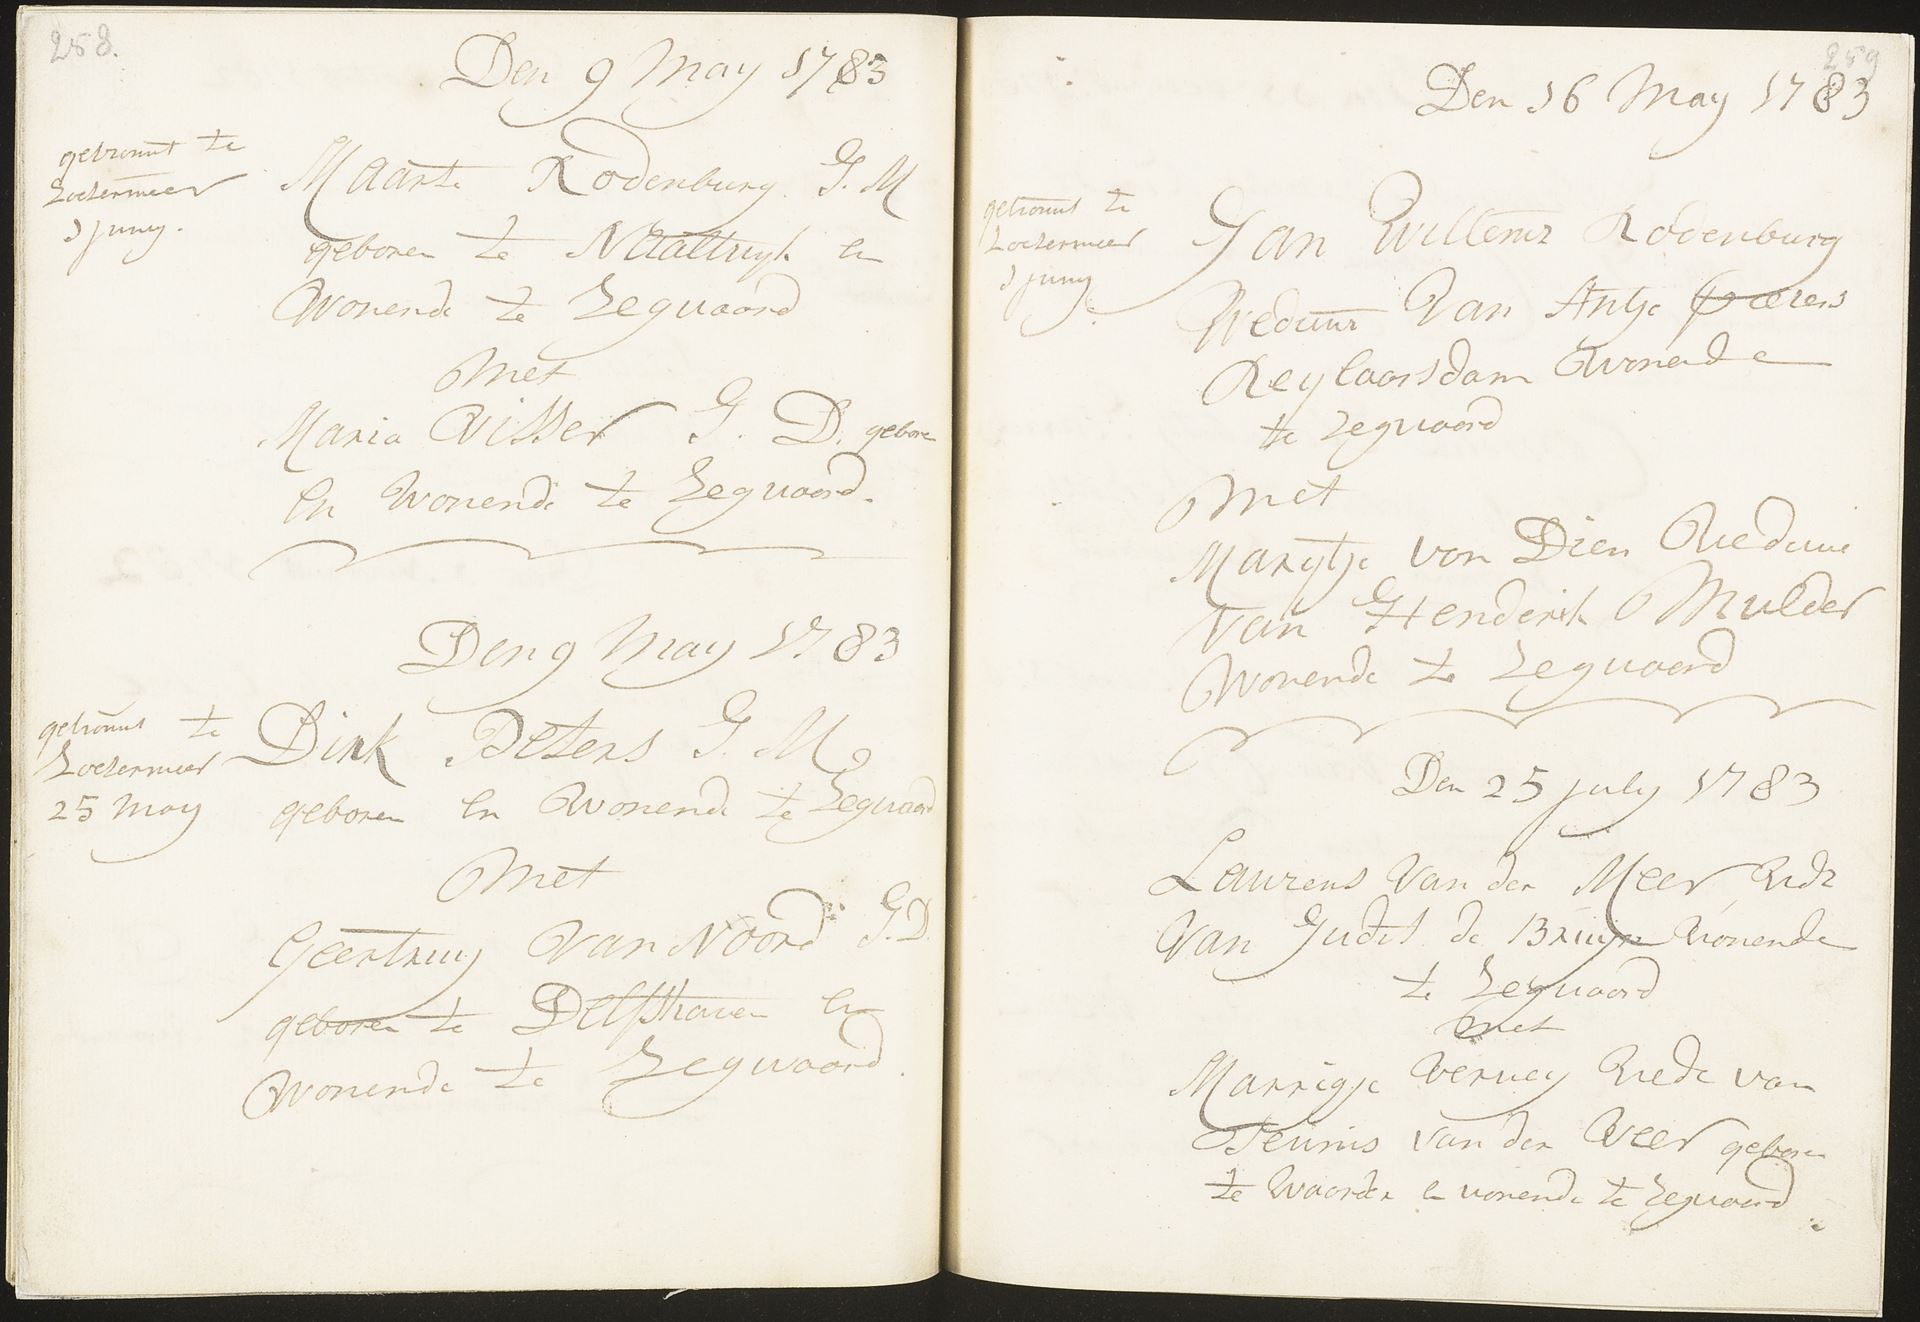 258.
Den 9 May 1783
getrouwt te
Zoetermeer
1 juny.
Maarte Rodenburg J. M
geboren te Naaltwyk en
Wonende te Zegwaard
Met
Maria Visser J. D. geboren
En Wonende te Zegwaard.
Den 9 May 1783
getrouwt te
Zoetermeer
25 May
Dirk Peters J. M
geboren En Wonende te Zegwaard
Met
Geertruy Van Noord J. D.
geboren te Delfshaven En
Wonende te Zegwaard.
259
Den 16 May 1783
getrouwt te
Zoetermeer
1 juny
Jan Willemz Rodenburg
Weduwr Van Antje
Wonende
te Zegwaard
Met
Marytje van Dien Weduwe
Van Henderik Mulder
Wonende te Zegwaard
Den 25 july 1783
Laurens Van der Meer Wedr
Van Judit de Bruyn Wonende
te Zegwaard
Met
Marrigje Verwey Wede van
Teunis van der Weer geboren
te Waarder en wonende te Zegwaard